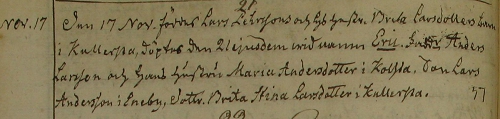 21.
Nov. 17 Den 17 Nov. föddes Lars Perssons och hs hustr. Brita Larsdotters barn
i Kullersta, döptes den 21 ejusdem wid namn Eric. Anders
Larsson och hans hustru Maria Andersdotter i Dr. Lars
Andersson i Eneby, Dottr. Brita Stina Larsdotter i Kullersta. 37